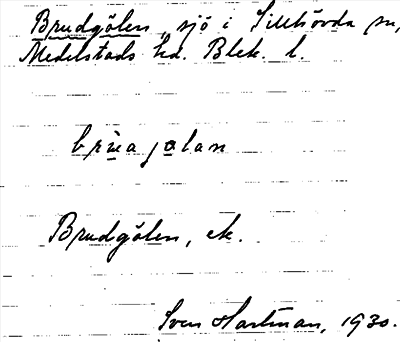 Brudgölen, sjö i Sillhövda sn,
Medelstads hd. Blek. l.
brùa jölan
Brudgölen, ek.
Sven Hartman, 1930.